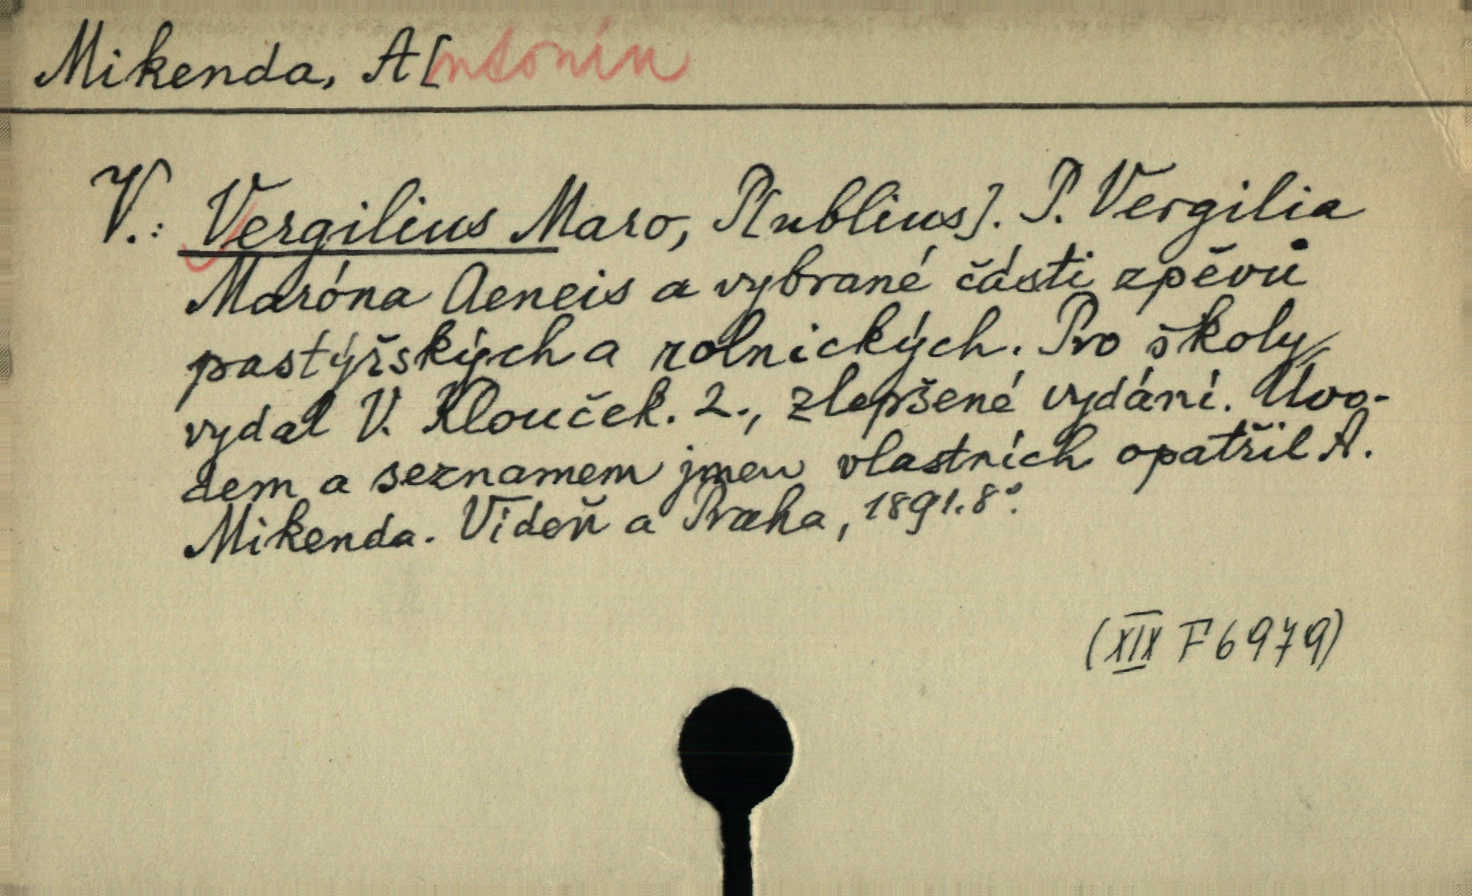 Mikenda, A[ntonín
V.: Vergilius Maro, P[ublius]. P. Vergilia
Maróna Aeneis a vybrané části zpěvů
pastýřských a rolnických. Pro školy
vydal V. Klouček. 2., zlepšené vydání. Úvo-
dem a seznamem jmen vlastních opatřil A.
Mikenda. Vídeň a Praha, 1891. 8°.
(XIX F 6979)